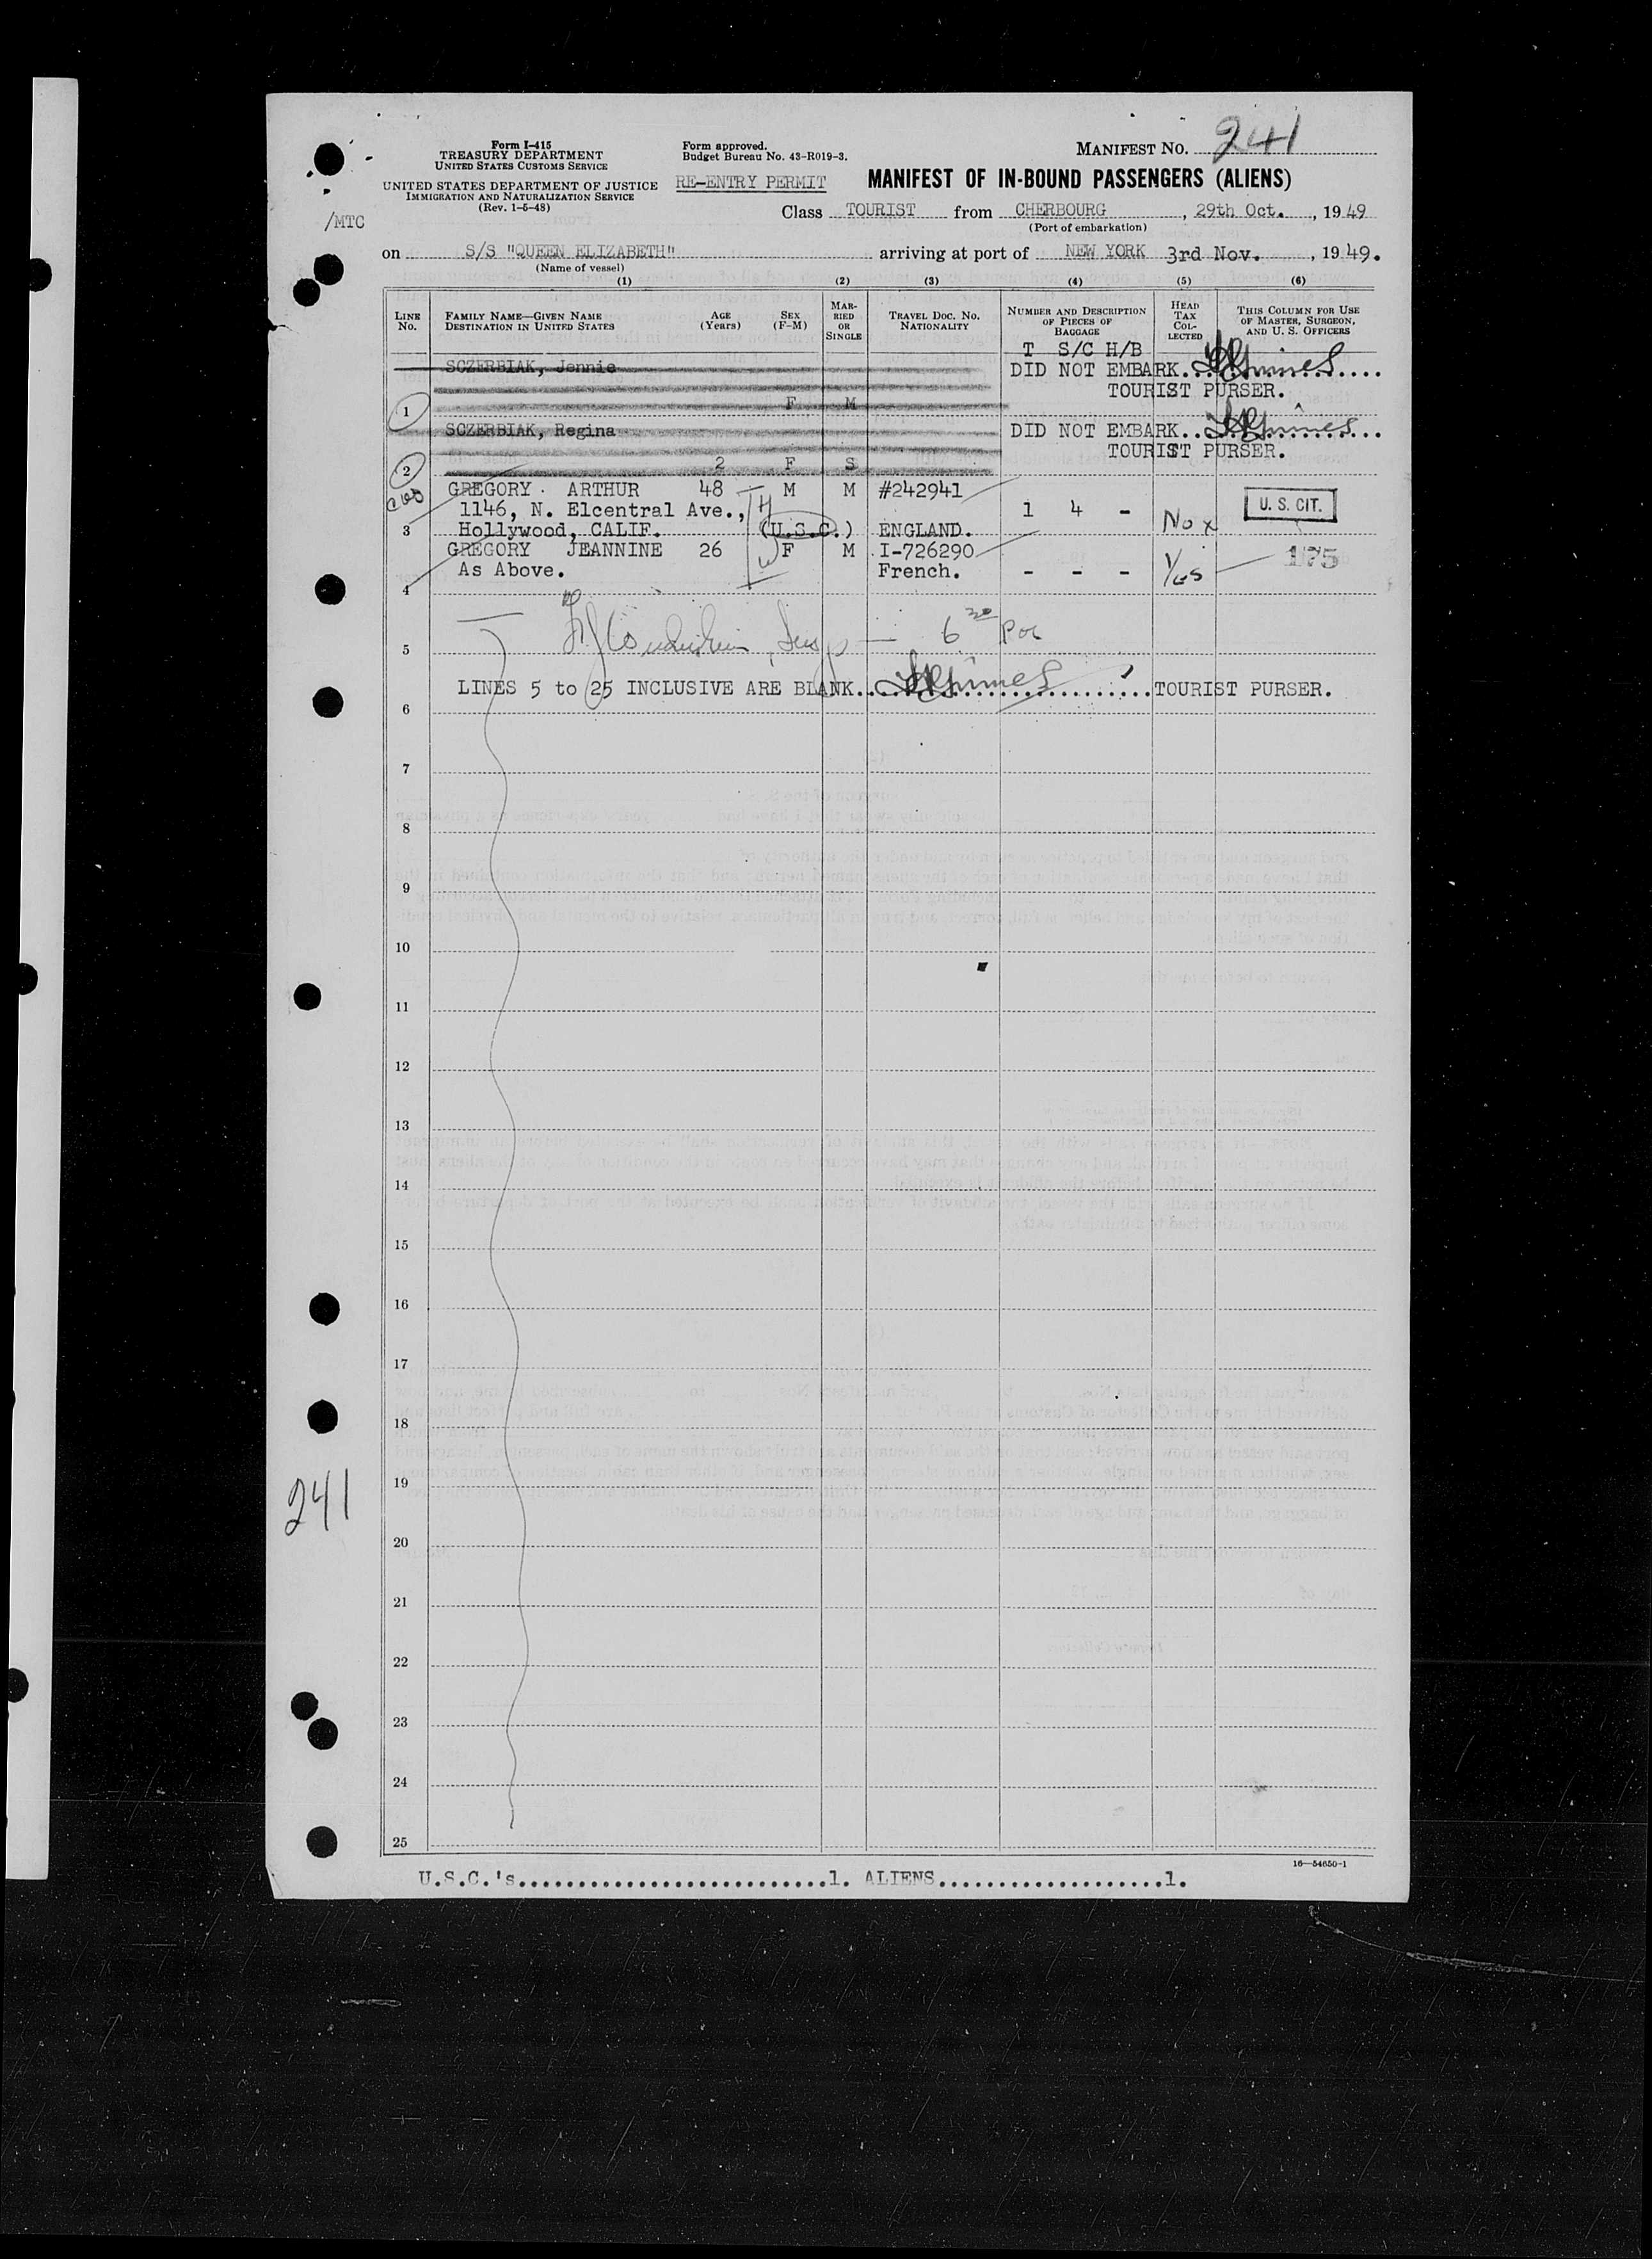 Form I-415
TREASURY DEPARTMENT
UNITED STATES CUSTOMS SERVICE
UNITED STATES DEPARTMENT OF JUSTICE
IMMIGRATION AND NATURALIZATION SERVICE
(Rev. 1-5-48)
/MTC
Form approved.
Budget Bureau No. 43-R019-3.
RE-ENTRY PERMIT
MANIFEST NO. 241
MANIFEST OF IN-BOUND PASSENGERS (ALIENS)
Class TOURIST from CHERBOURG, 29th Oct., 1949
(Port of embarkation)
on S/S "QUEEN ELIZABETH" arriving at port of NEW YORK 3rd Nov., 1949.
(Name of vessel)
(1) (2) (3) (4) (5) (6)
LINE No.
FAMILY NAME—GIVEN NAME
DESTINATION IN UNITED STATES
AGE (Years)
SEX (F-M)
MARRIED OR SINGLE
TRAVEL DOC. NO.
NATIONALITY
NUMBER AND DESCRIPTION OF PIECES OF BAGGAGE
HEAD TAX COLLECTED
THIS COLUMN FOR USE OF MASTER, SURGEON, AND U. S. OFFICERS
T S/C H/B
SCZERBIAK, Jennie DID NOT EMBARK
TOURIST PURSER.
1 F M
SCZERBIAK, Regina DID NOT EMBARK
TOURIST PURSER.
2 2 F S
GREGORY ARTHUR 48 M M #242941
1146, N. Elcentral Ave., H 1 4 - U. S. CIT.
3 Hollywood, CALIF. (U.S.C.) ENGLAND. No x
GREGORY JEANNINE 26 W F M I-726290
As Above. French. - - - Yes 175
4
6 30
5
LINES 5 to 25 INCLUSIVE ARE BLANK TOURIST PURSER.
6
7
8
9
10
11
12
13
14
15
16
17
18
19
241
20
21
22
23
24
25
16—54650-1
U.S.C.'s..........................1. ALIENS...................1.